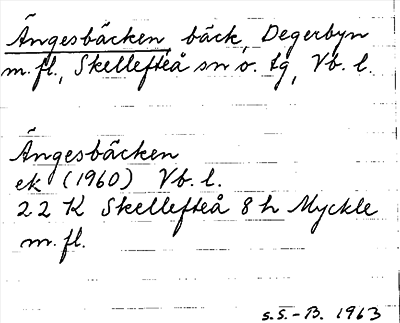 Ängesbäcken, bäck, Degerbyn
m.fl., Skellefteå sn o. tg, Vb. l.
Ängesbäcken
ek (1960) Vb. l.
22 K Skellefteå 8 h Myckle
m. fl.
s. S.-B. 1963